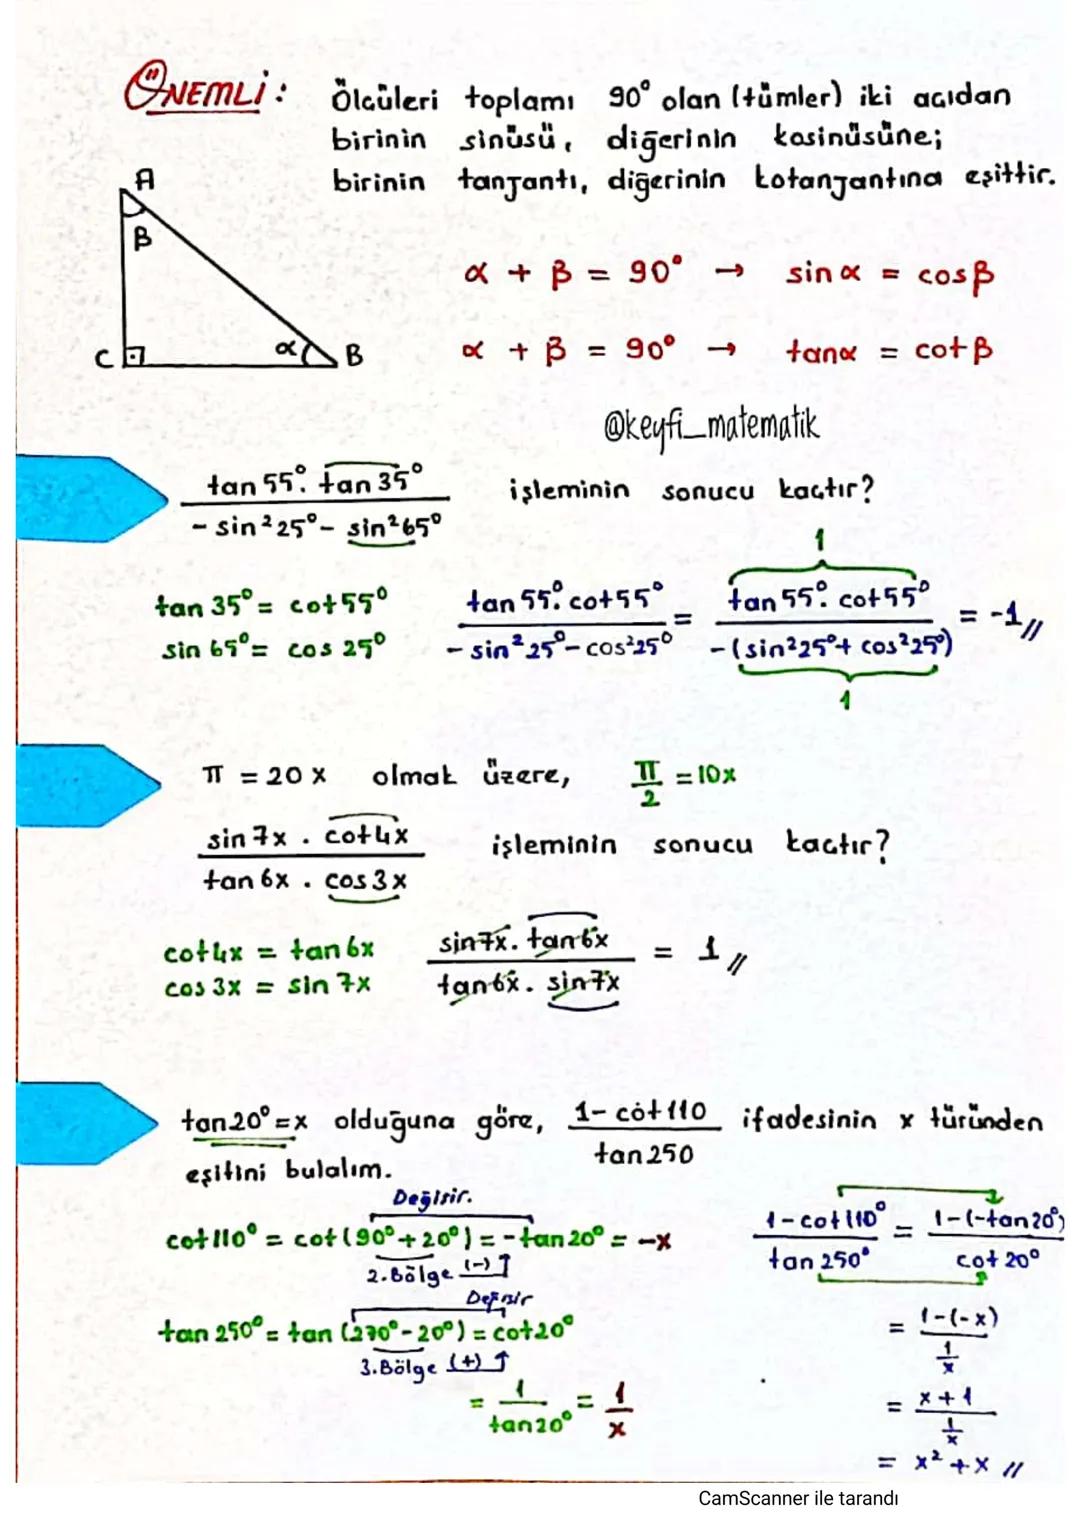 ÖNEMLİ: Ölçüleri toplamı 90° olan (tümler) iki açıdan
birinin sinüsü, diğerinin kosinüsüne;
birinin tanjantı, diğerinin kotanjantına eşittir.
A
β
C
α
B
α + β = 90° → sin α = cosβ
α + β = 90° → tanα = cotβ
@keyfi_matematik
tan 55°. tan 35° / - sin²25° - sin²65° işleminin sonucu kaçtır?
tan 35° = cot55°
sin 65° = cos 25°
tan 55°. cot55° / - sin²25° - cos²25° = tan 55°. cot55° / -(sin²25° + cos²25°) = -1//
1
1
π = 20x olmak üzere, π/2 = 10x
sin 7x . cot4x / tan 6x . cos 3x işleminin sonucu kaçtır?
cot4x = tan 6x
cos 3x = sin 7x
sin7x. tan6x / tan6x. sin7x = 1//
tan20° = x olduğuna göre, 1- cot110 / tan250 ifadesinin x türünden
eşitini bulalım.
Değişir.
cot110° = cot(90°+20°) = -tan20° = -x
2.Bölge (-)
Değişir
tan 250° = tan (270°-20°) = cot20°
3.Bölge (+)
= 1/tan20° = 1/x
1-cot110° / tan 250° = 1-(-tan20°) / cot 20°
= 1-(-x) / 1/x
= x+1 / 1/x
= x² + x //
CamScanner ile tarandı